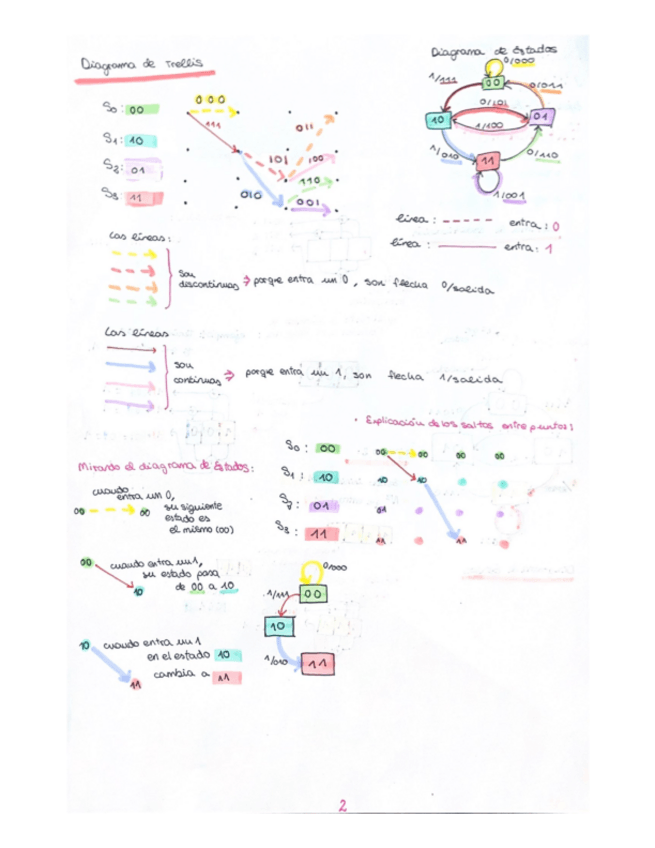 Diagrama de Trellis
S0: 00
S1: 10
S2: 01
S3: 11
000
111
011
101
100
010
110
001
Diagrama de Estados
0/000
1/111
00
0/011
0/101
10
01
1/100
1/010
11
0/110
1/001
línea: entra: 0
línea: entra: 1
Las líneas:
son
discontinuas → porque entra un 0, son flecha 0/salida
Las líneas
son
continuas → porque entra un 1, son flecha 1/salida
• Explicación de los saltos entre puntos:
S0: 00
S1: 10
S2: 01
S3: 11
00 00 00 00
10 10
01
11 11
Mirando el diagrama de Estados:
cuando
entra un 0,
00 00 su siguiente
estado es
el mismo (00)
00 cuando entra un 1,
su estado pasa
10 de 00 a 10
10 cuando entra un 1
en el estado 10
11 cambia a 11
0/000
1/111 00
10
1/010 11
2